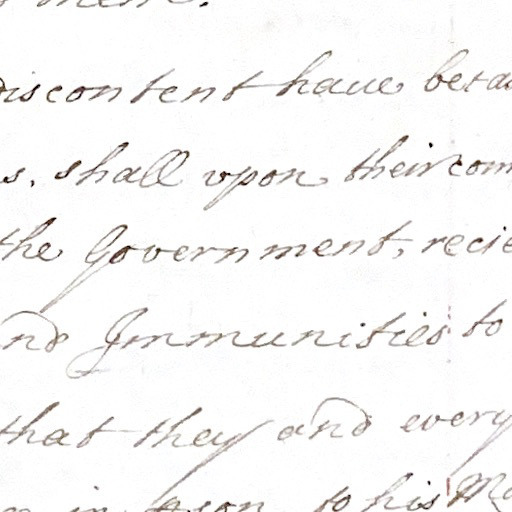 discontent haue beta
s. shall vpon their com
the Government, recie
nd Immunities to
that they and every
to his Ma